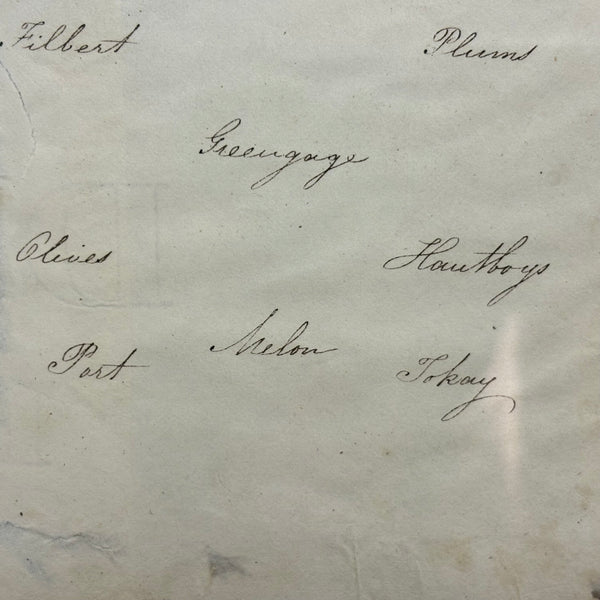 Filbert Plums
Greengage
Olives Hautboys
Melon
Port Tokay